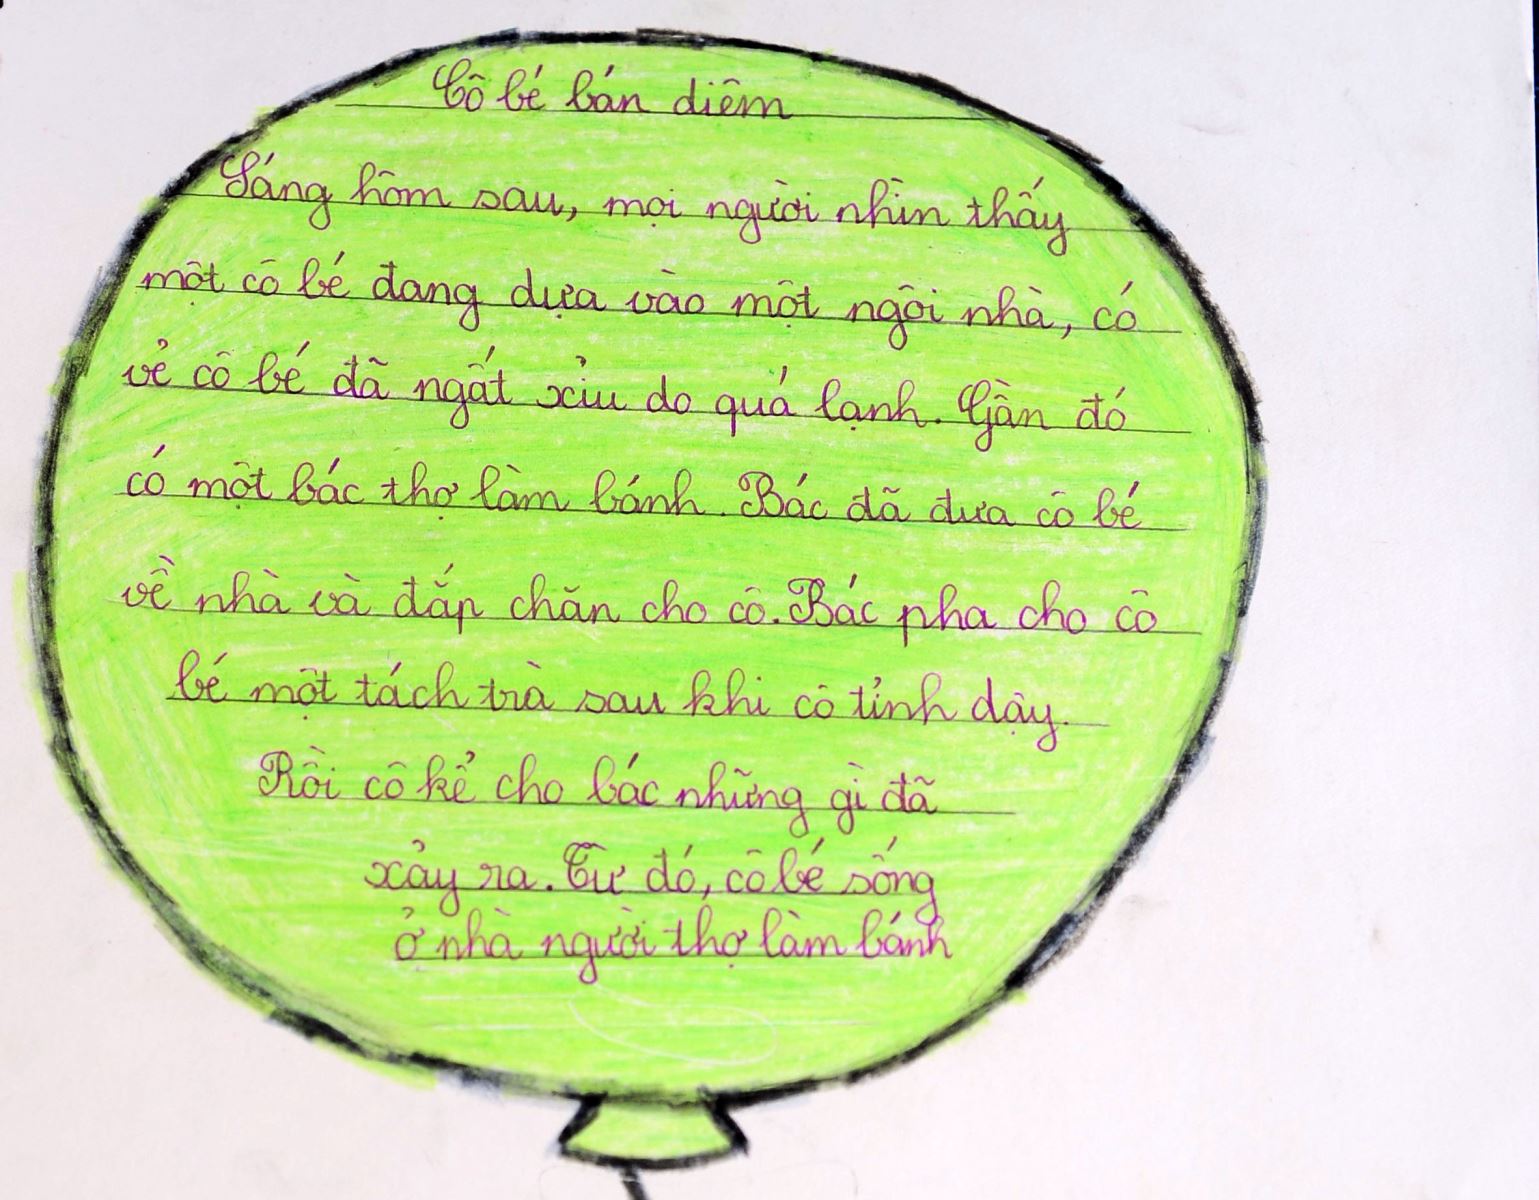 Cô bé bán diêm
Sáng hôm sau, mọi người nhìn thấy
một cô bé đang dựa vào một ngôi nhà, có
vẻ cô bé đã ngất xỉu do quá lạnh. Gần đó
có một bác thợ làm bánh. Bác đã đưa cô bé
về nhà và đắp chăn cho cô. Bác pha cho cô
bé một tách trà sau khi cô tỉnh dậy.
Rồi cô kể cho bác những gì đã
xảy ra. Từ đó, cô bé sống
ở nhà người thợ làm bánh